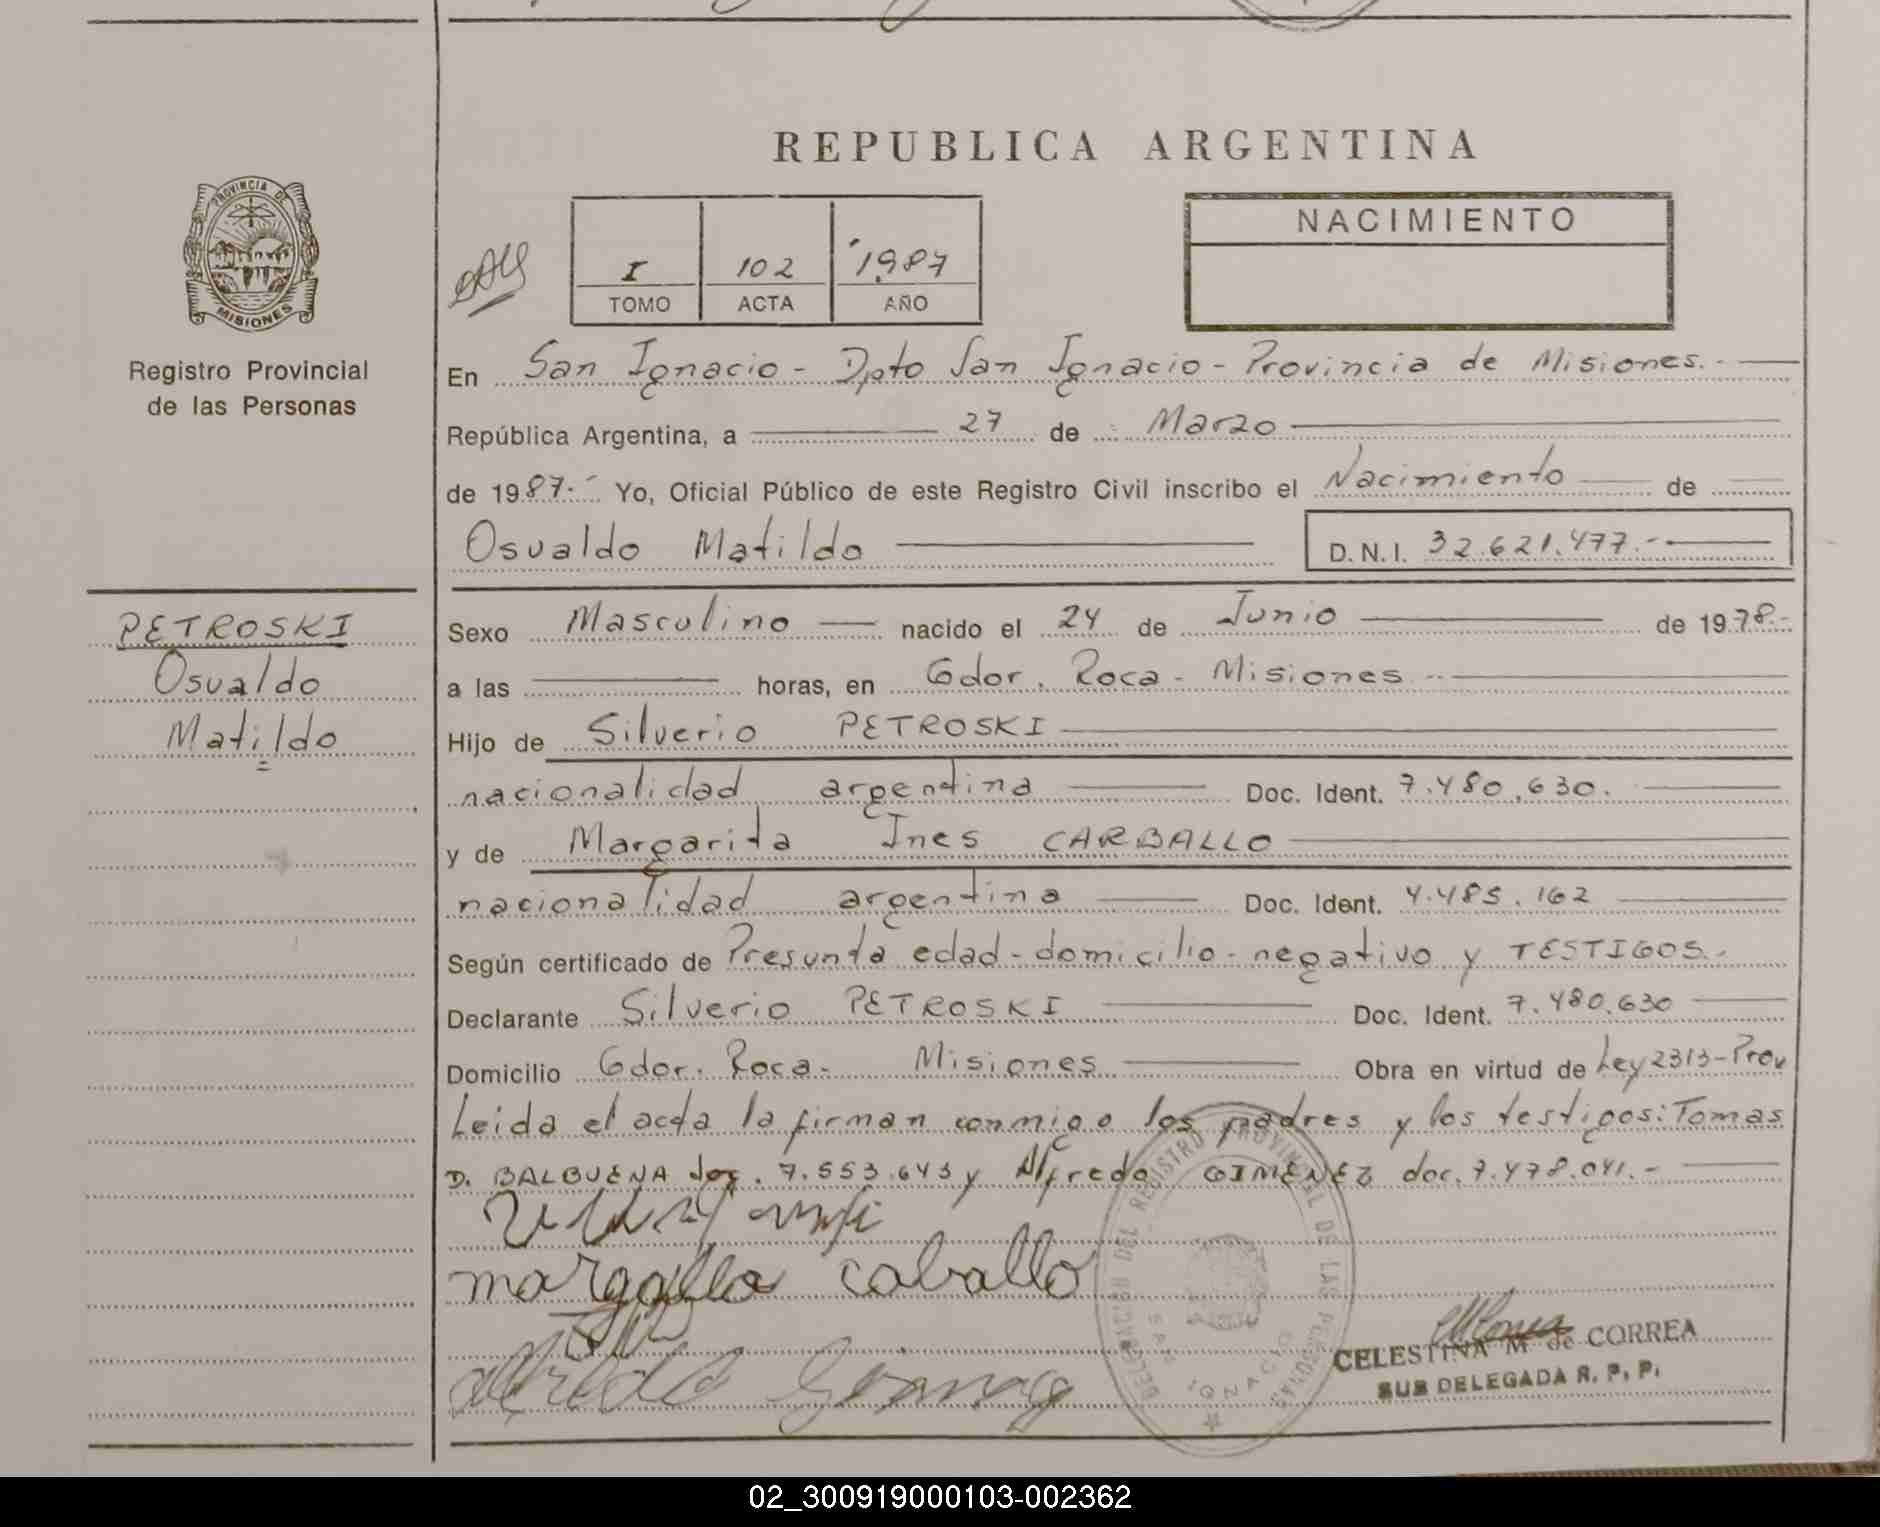 REPUBLICA ARGENTINA
PROVINCIA DE
MISIONES
Registro Provincial
de las Personas
I 102 1987
TOMO ACTA AÑO
NACIMIENTO
En San Ignacio - Dpto San Ignacio - Provincia de Misiones.-
República Argentina, a 27 de Marzo
de 1987.- Yo, Oficial Público de este Registro Civil inscribo el Nacimiento de
Osvaldo Matildo D.N.I. 32.621.477.-
PETROSKI
Osvaldo
Matildo
Sexo Masculino nacido el 24 de Junio de 1978.-
a las horas, en Gdor. Roca - Misiones
Hijo de Silverio PETROSKI
nacionalidad argentina Doc. Ident. 7.480.630.
y de Margarita Ines CARBALLO
nacionalidad argentina Doc. Ident. 4.485.162
Según certificado de Presunta edad - domicilio - negativo y TESTIGOS.-
Declarante Silverio PETROSKI Doc. Ident. 7.480.630
Domicilio Gdor. Roca - Misiones Obra en virtud de Ley 2313-Prov
Leida el acta la firman conmigo los padres y los testigos: Tomas
D. BALBUENA doc. 7.553.643 y Alfredo GIMENEZ doc. 7.478.041.-
caballo
DELEGACION DEL REGISTRO PROVINCIAL DE LAS PERSONAS
SAN IGNACIO
CELESTINA M de CORREA
SUB DELEGADA R. P. P.
02_300919000103-002362